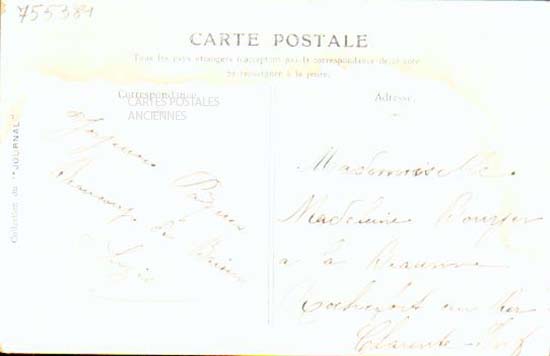 755384
CARTE POSTALE
Tous les pays étrangers n'acceptent pas la correspondance de ce côté
se renseigner à la poste
Correspondance
Adresse
CARTES POSTALES
ANCIENNES
Collection du "JOURNAL"
Joyeuses Pâques
Beaucoup de Baisers
Mademoiselle
Madeleine
a la
Rochefort sur Mer
Charente Inf